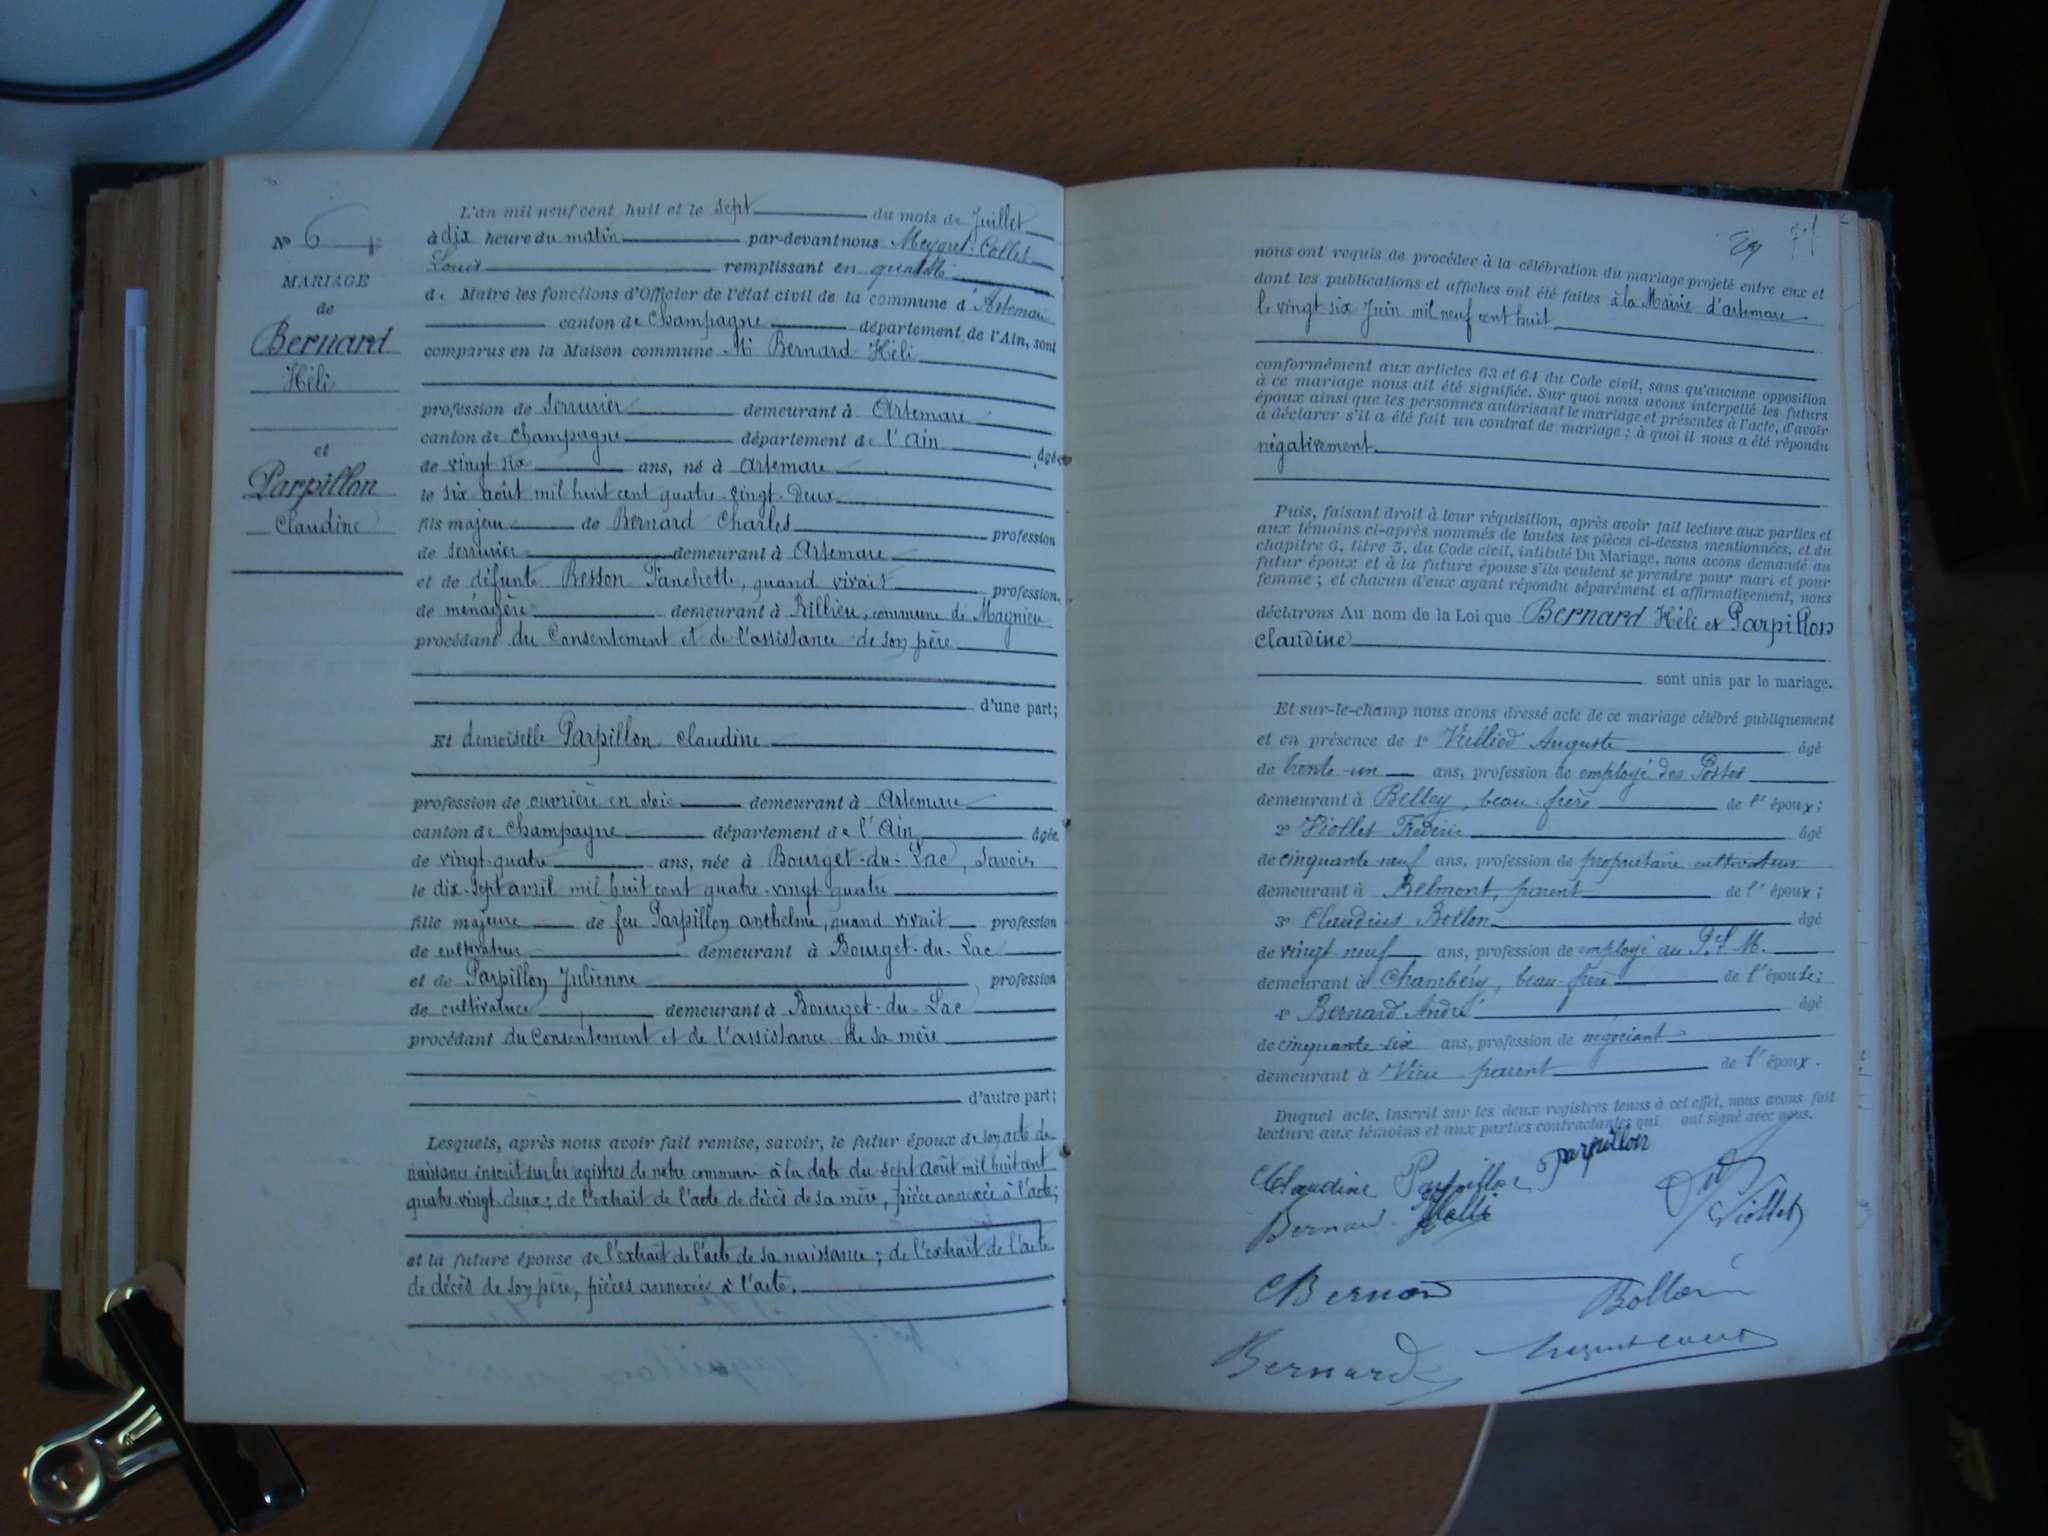 N° 6
MARIAGE
de
Bernard
Héli
et
Parpillon
Claudine
L'an mil neuf cent huit et le sept du mois de Juillet
à dix heure du matin par-devant nous Meyget-Collet
Louis remplissant en qualité
de Maire les fonctions d'Officier de l'état civil de la commune d'Artemare
canton de Champagne département de l'Ain, sont
comparus en la Maison commune Mr Bernard Héli
profession de serrurier demeurant à Artemare
canton de Champagne département de l'Ain âgé
de vingt six ans, né à Artemare
le six août mil huit cent quatre-vingt-deux
fils majeur de Bernard Charles profession
de serrurier demeurant à Artemare
et de défunte Besson Fanchette, quand vivait profession
de ménagère demeurant à Billieu, commune de Magnieu
procédant du Consentement et de l'assistance de son père
d'une part;
Et demoiselle Parpillon Claudine
profession de ouvrière en soie demeurant à Artemare
canton de Champagne département de l'Ain âgée
de vingt-quatre ans, née à Bourget-du-Lac, Savoie
le dix-sept avril mil huit cent quatre-vingt-quatre
fille majeure de feu Parpillon Anthelme, quand vivait profession
de cultivateur demeurant à Bourget-du-Lac
et de Parpillon Julienne, profession
de cultivatrice demeurant à Bourget-du-Lac
procédant du Consentement et de l'assistance de sa mère
d'autre part;
Lesquels, après nous avoir fait remise, savoir, le futur époux de son acte de
naissance inscrit sur les registres de notre commune à la date du sept août mil huit cent
quatre-vingt-deux; de l'extrait de l'acte de décès de sa mère, pièce annexée à l'acte;
et la future épouse de l'extrait de l'acte de sa naissance; de l'extrait de l'acte
de décès de son père, pièces annexées à l'acte.
71
nous ont requis de procéder à la célébration du mariage projeté entre eux et
dont les publications et affiches ont été faites à la Mairie d'Artemare
le vingt-six Juin mil neuf cent huit
conformément aux articles 63 et 64 du Code civil, sans qu'aucune opposition
à ce mariage nous ait été signifiée. Sur quoi nous avons interpellé les futurs
époux ainsi que les personnes autorisant le mariage et présentes à l'acte, d'avoir
à déclarer s'il a été fait un contrat de mariage; à quoi il nous a été répondu
négativement
Puis, faisant droit à leur réquisition, après avoir fait lecture aux parties et
aux témoins ci-après nommés de toutes les pièces ci-dessus mentionnées, et du
chapitre 6, titre 5, du Code civil, intitulé Du Mariage, nous avons demandé au
futur époux et à la future épouse s'ils veulent se prendre pour mari et pour
femme; et chacun d'eux ayant répondu séparément et affirmativement, nous
déclarons Au nom de la Loi que Bernard Héli et Parpillon
Claudine
sont unis par le mariage.
Et sur-le-champ nous avons dressé acte de ce mariage célébré publiquement
et en présence de 1° Vulliod Auguste âgé
de trente-un ans, profession de employé des Postes
demeurant à Belley, beau-frère de l'époux;
2° Viollet Frédéric âgé
de cinquante-neuf ans, profession de propriétaire cultivateur
demeurant à Belmont, parent de l'époux;
3° Claudius Bollon âgé
de vingt neuf ans, profession de employé au P.L.M.
demeurant à Chambéry, beau-frère de l'épouse;
4° Bernard André âgé
de cinquante six ans, profession de négociant
demeurant à Vieu parent de l'époux.
Duquel acte, inscrit sur les deux registres tenus à cet effet, nous avons fait
lecture aux témoins et aux parties contractantes qui ont signé avec nous.
Claudine Parpillon Parpillon
Bernard Helli Viollet
Bernard
Bernard